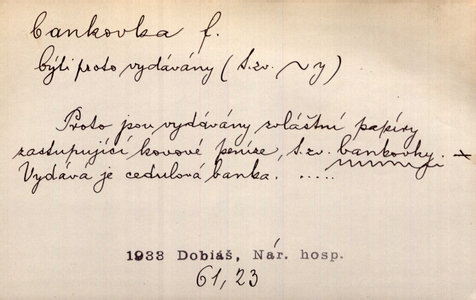 bankovka f.
býti proto vydávány (t.zv. ~y)
Proto jsou vydávány zvláštní papíry
zastupující kovové peníze, t.zv. bankovky. +
Vydává je cedulová banka. .....
1933 Dobiáš, Nár. hosp.
61,23